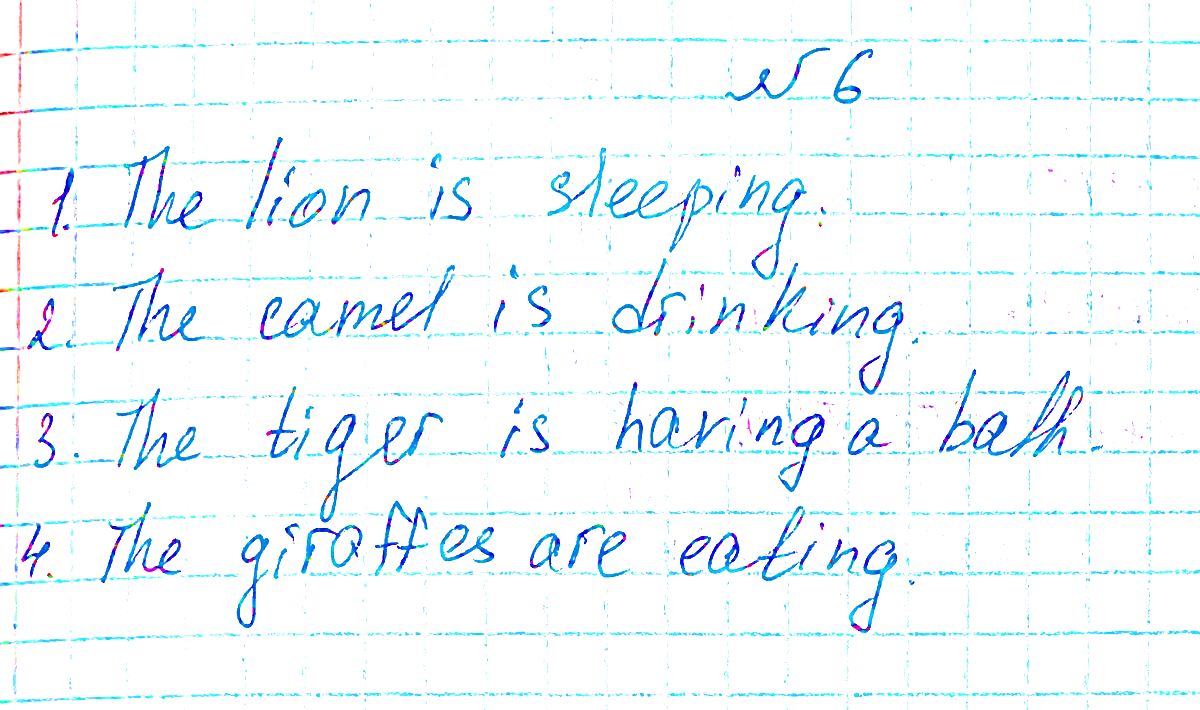 № 6
1. The lion is sleeping.
2. The camel is drinking.
3. The tiger is having a bath.
4. The giraffes are eating.